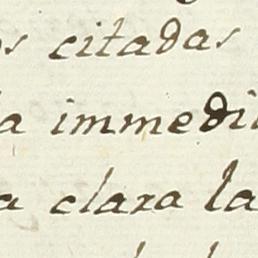 citadas
immedi
clara la